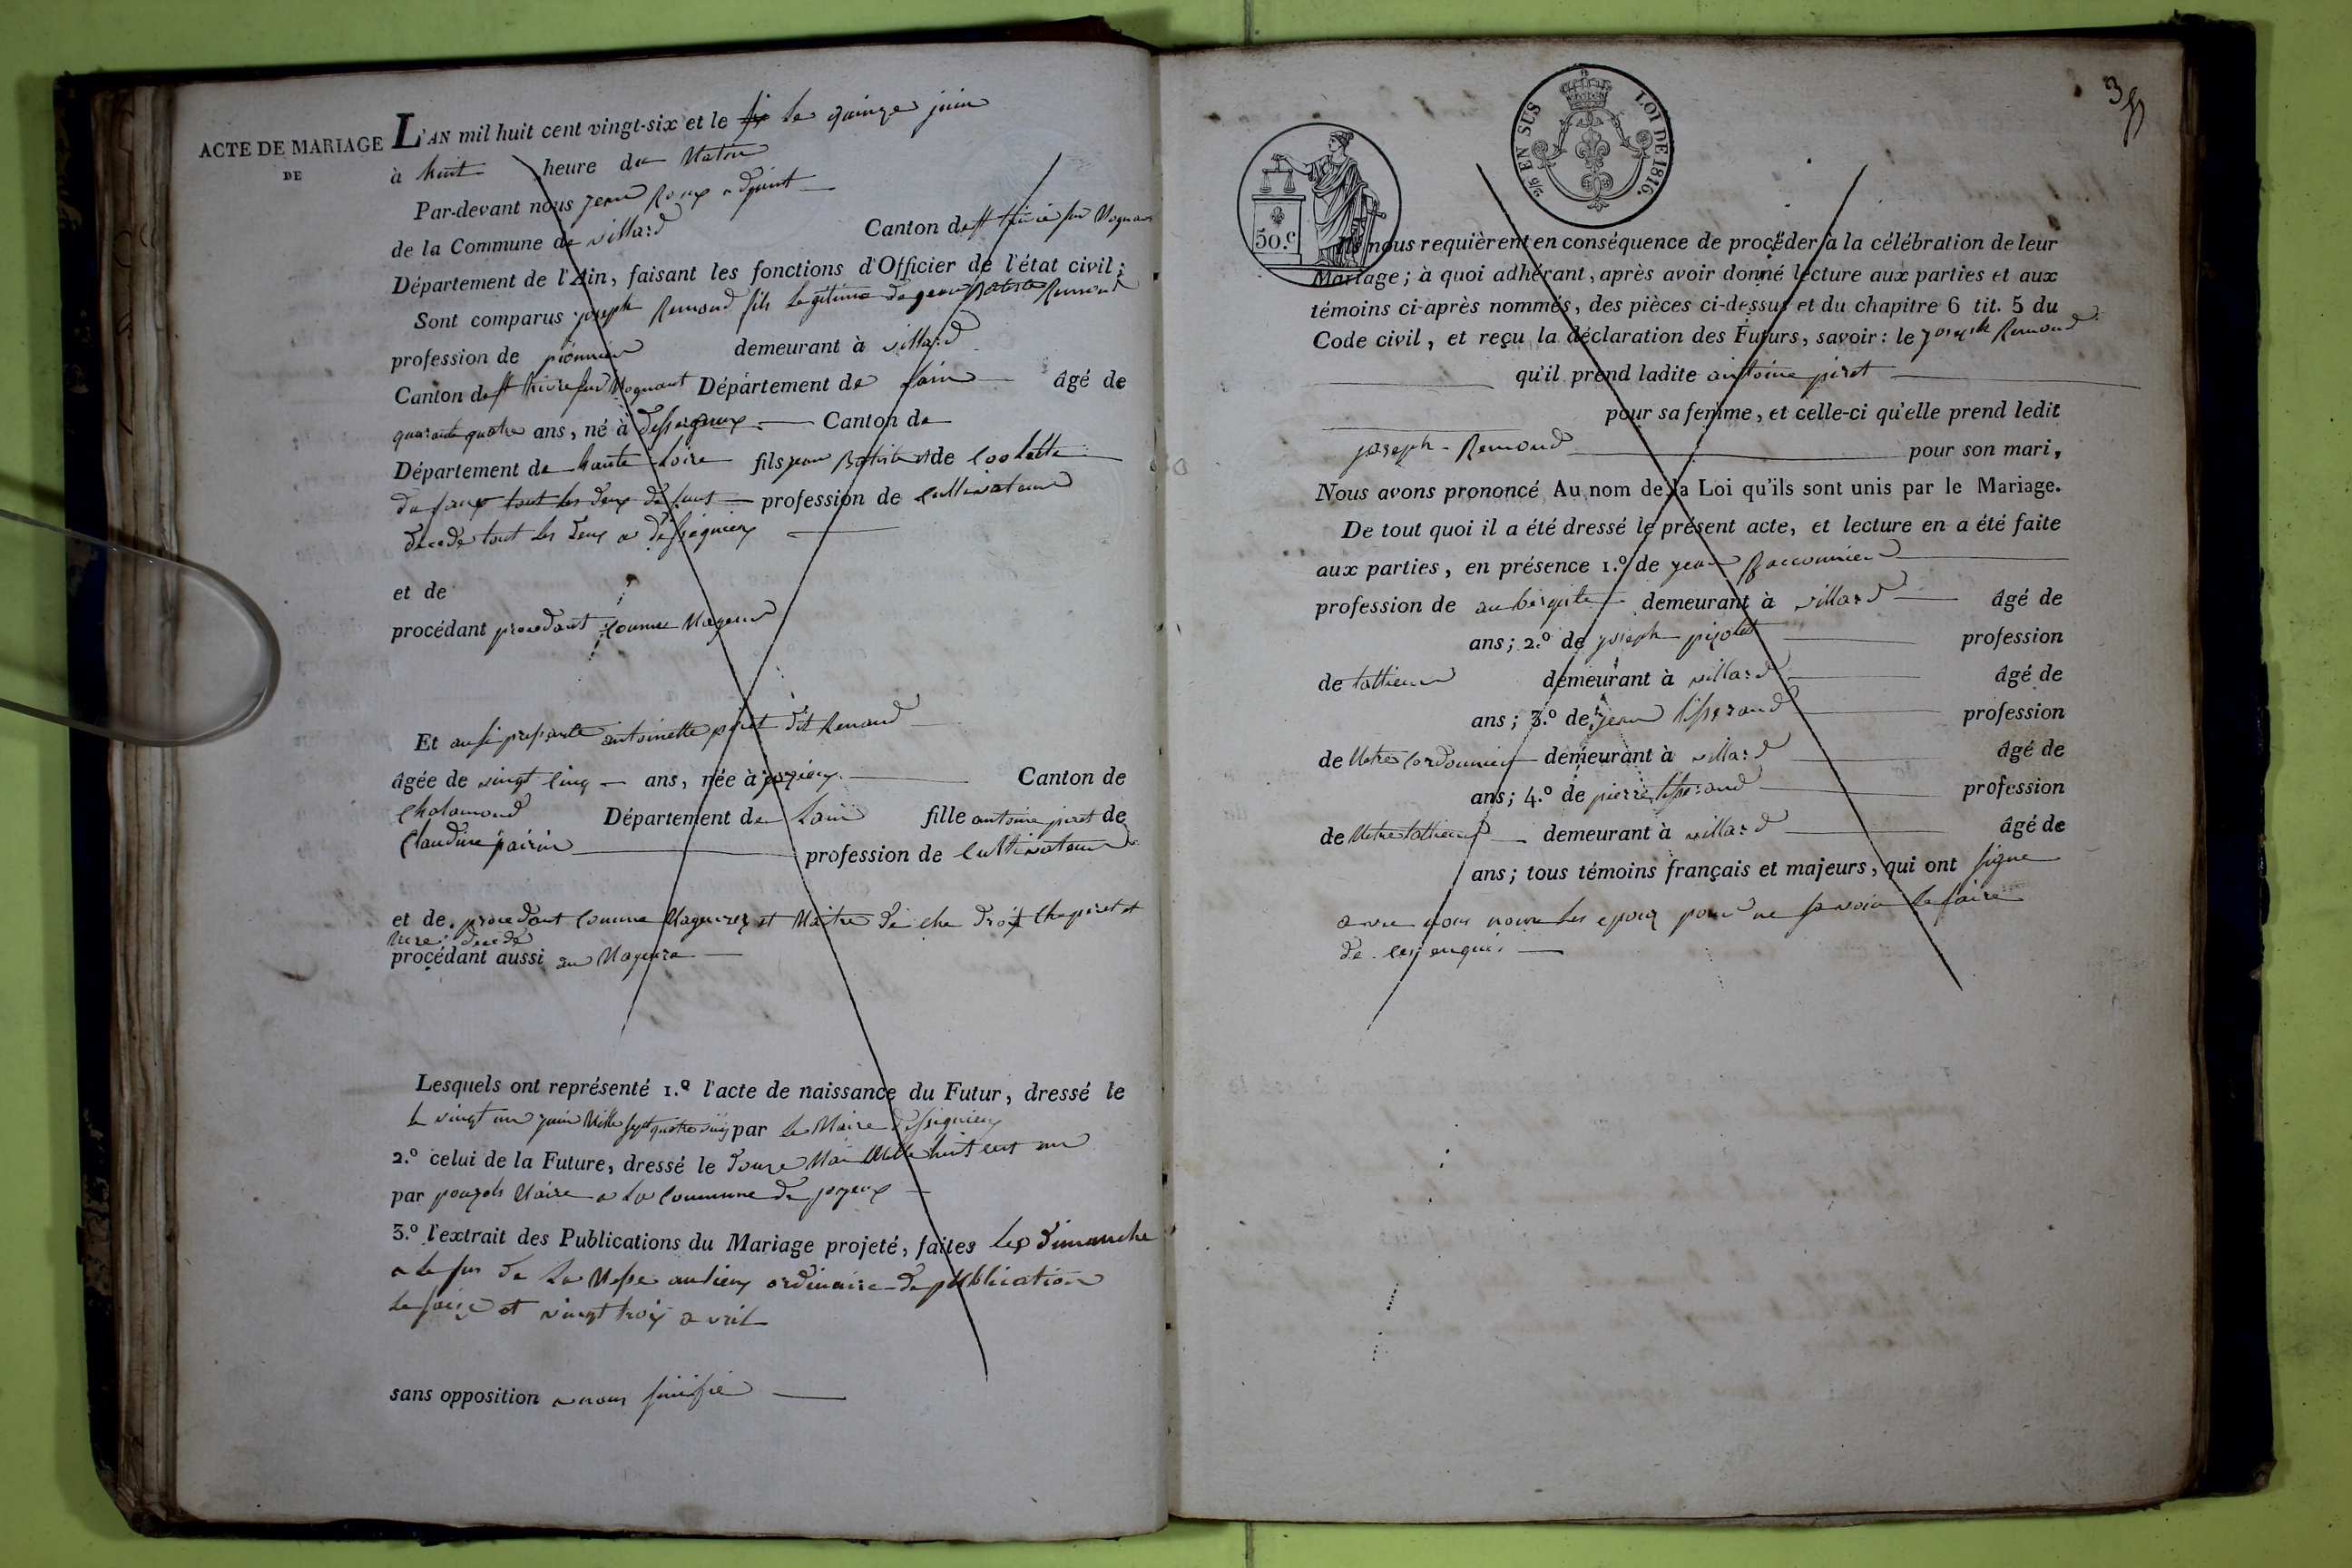 ACTE DE MARIAGE
DE
L'AN mil huit cent vingt-six et le le quinze juin
à huit heure du Matin
Par-devant nous jean Roux adjoint
de la Commune de villard Canton de st
Département de l'Ain, faisant les fonctions d'Officier de l'état civil;
Sont comparus joseph Remond fils legitime de jean Batiste Remond
profession de pionnier demeurant à villard
Canton de st Département de lain âgé de
quarante quatre ans, né à Canton de
Département de haute loire fils jean Batiste et de
tout les deux profession de cultivateur
décédé tout les deux a
et de
procédant procedant comme Mageur
Et ausi presente antoinette piret dit Renaud
âgée de vingt cinq ans, née à Canton de
Chalamond Département de Lain fille antoine piret de
Claudine profession de cultivateur
et de procedant comme et Maitre de
Mere decede
procédant aussi
Lesquels ont représenté 1.º l'acte de naissance du Futur, dressé le
le vingt un juin Mille sept par le Maire
2.º celui de la Future, dressé le Mai Mille huit cent un
par Maire a La Commune de joyeux
3.º l'extrait des Publications du Mariage projeté, faites les dimanche
a la de La Messe au lieux ordinaire de publication
le et vingt trois avril
sans opposition a nous
35
2/5 EN SUS LOI DE 1816.
50.c
Ils nous requièrent en conséquence de procéder à la célébration de leur
Mariage; à quoi adhérant, après avoir donné lecture aux parties et aux
témoins ci-après nommés, des pièces ci-dessus et du chapitre 6 tit. 5 du
Code civil, et reçu la déclaration des Futurs, savoir: le joseph Remond
qu'il prend ladite antoine piret
pour sa femme, et celle-ci qu'elle prend ledit
joseph Remond pour son mari,
Nous avons prononcé Au nom de la Loi qu'ils sont unis par le Mariage.
De tout quoi il a été dressé le présent acte, et lecture en a été faite
aux parties, en présence 1.º de jean
profession de aubergiste demeurant à villard âgé de
ans; 2.º de joseph pizolat profession
de tallieur demeurant à villard âgé de
ans; 3.º de jean tisserand profession
de Metre Cordonnier demeurant à villard âgé de
ans; 4.º de pierre tisserand profession
de Metre tallieur demeurant à villard âgé de
ans; tous témoins français et majeurs, qui ont signe
avec nous les epoux pour ne savoir le faire
de